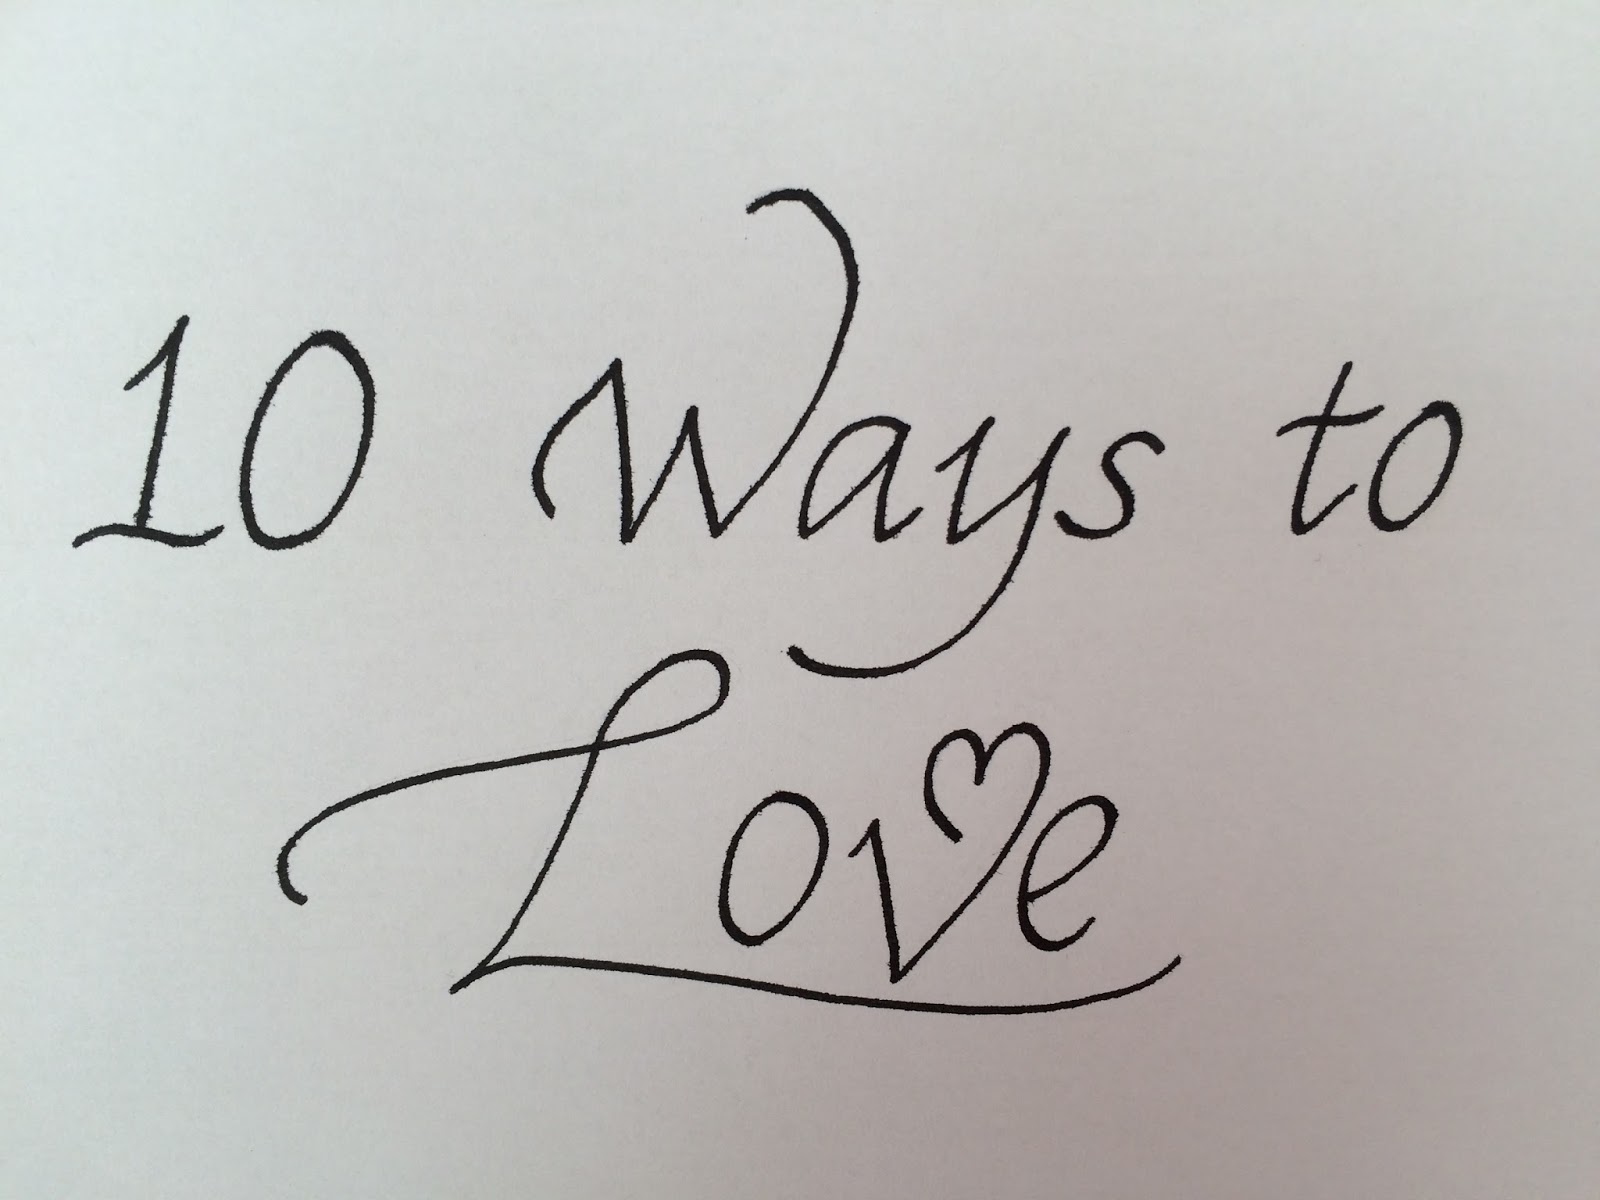 10 Ways to
Love